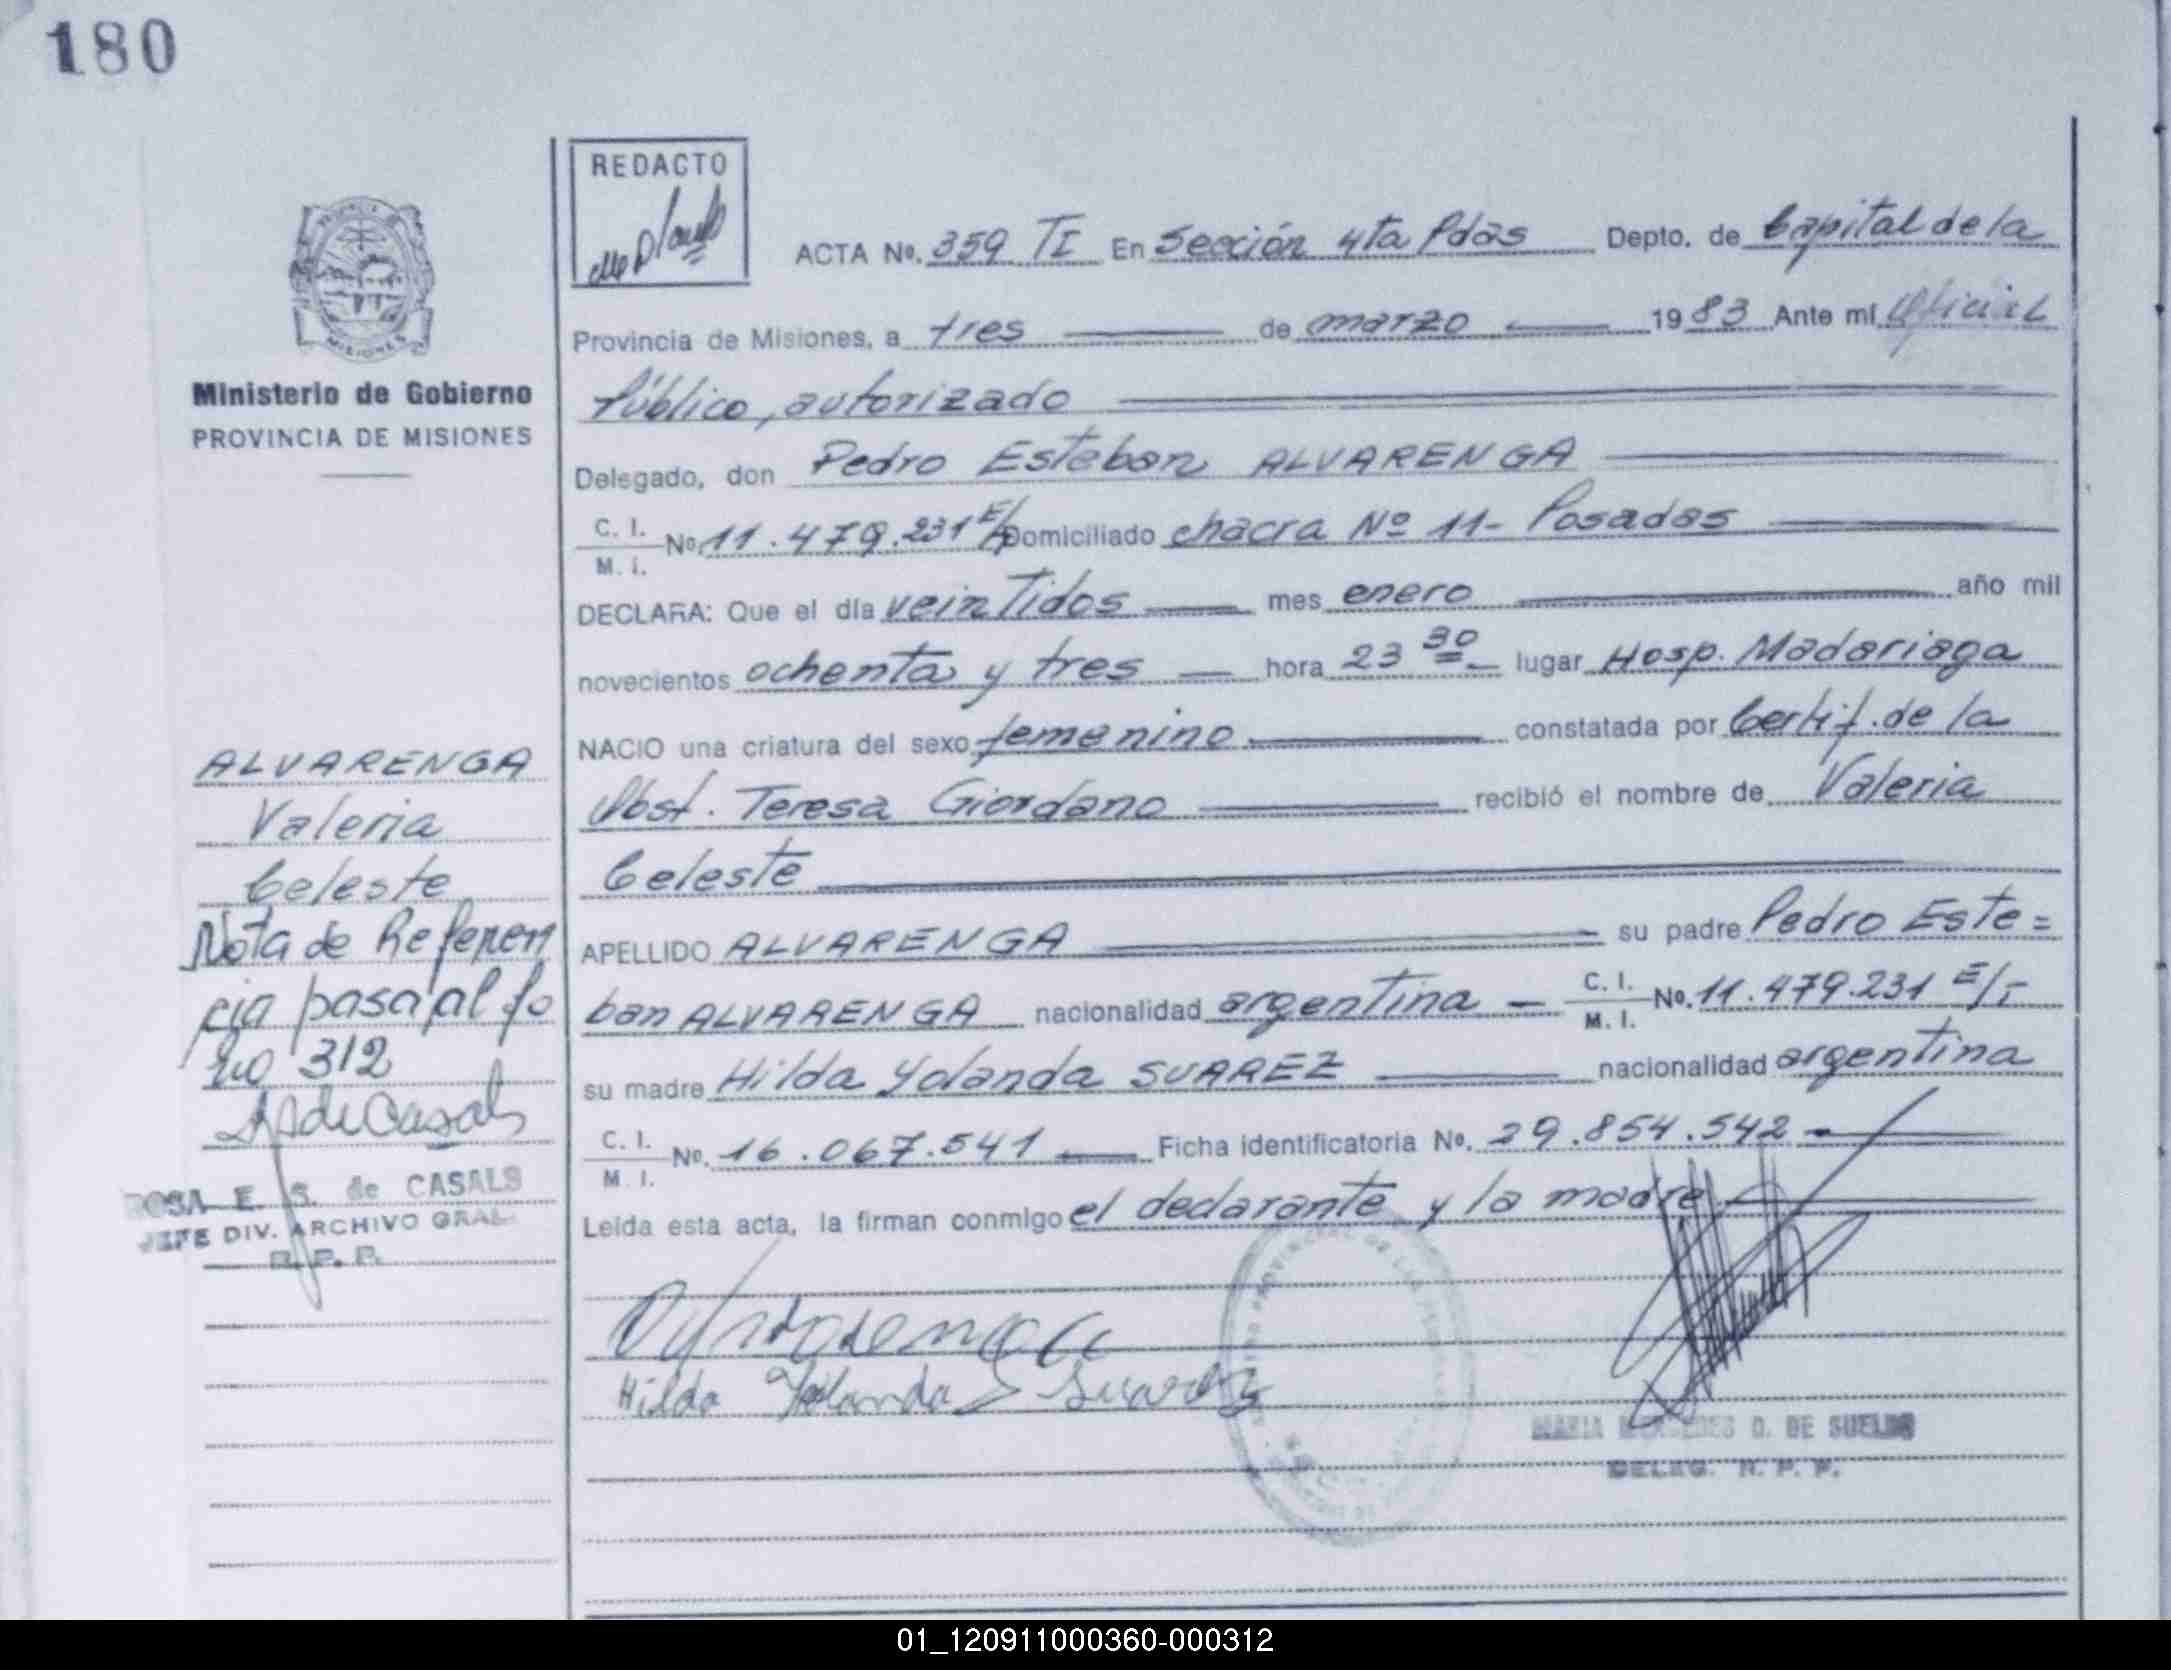 180
REDACTO
ACTA No. 359 TI En Sección 4ta Pdas Depto. de Capital de la
Provincia de Misiones, a tres de marzo 1983 Ante mí Oficial
Ministerio de Gobierno
Público, autorizado
PROVINCIA DE MISIONES
Delegado, don Pedro Esteban ALVARENGA
C. I. M. I. No. 11.479.231 E/T Domiciliado chacra Nº 11- Posadas
DECLARA: Que el día veintidos mes enero año mil
novecientos ochenta y tres hora 23 30 lugar Hosp. Madariaga
NACIO una criatura del sexo femenino constatada por Certif. de la
Obst. Teresa Giordano recibió el nombre de Valeria
Celeste
APELLIDO ALVARENGA su padre Pedro Este=
ban ALVARENGA nacionalidad argentina C. I. M. I. No. 11.479.231 E/T
su madre Hilda Yolanda SUAREZ nacionalidad argentina
C. I. M. I. No. 16.067.541 Ficha identificatoria No. 29.854.542
Leída esta acta, la firman conmigo el declarante y la madre
Hilda Yolanda Suarez
MARIA MERCEDES D. DE SUELDO
DELEG. R. P. P.
MISIONES
ALVARENGA
Valeria
Celeste
Nota de Referen
cia pasa al fo
lio 312
ROSA E. S. de CASALS
JEFE DIV. ARCHIVO GRAL.
R. P. P.
01_120911000360-000312